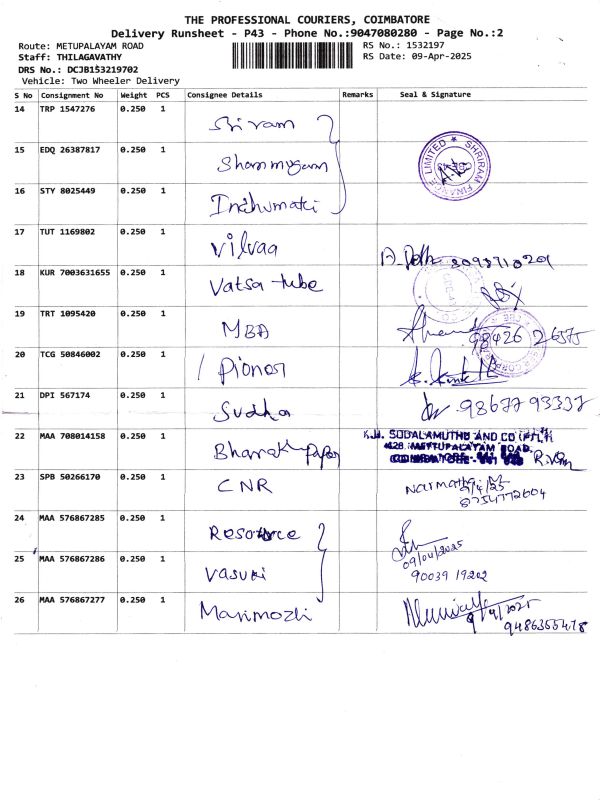 THE PROFESSIONAL COURIERS, COIMBATORE
Delivery Runsheet - P43 - Phone No.:9047080280 - Page No.:2
Route: METUPALAYAM ROAD
RS No.: 1532197
Staff: THILAGAVATHY
RS Date: 09-Apr-2025
DRS No.: DCJB153219702
Vehicle: Two Wheeler Delivery
S No Consignment No Weight PCS Consignee Details Remarks Seal & Signature
14 TRP 1547276 0.250 1
Sri ram
15 EDQ 26387817 0.250 1
Shanmugam
SHRIRAM FINANCE LIMITED
16 STY 8025449 0.250 1
Indhumathi
17 TUT 1169802 0.250 1
Vilvaa
18 KUR 7003631655 0.250 1
Vatsa tube
19 TRT 1095420 0.250 1
MBA
98426 26575
20 TCG 50846002 0.250 1
Pioner
21 DPI 567174 0.250 1
Sudha
98677 93337
22 MAA 708014158 0.250 1
Bharath Paper
SUDALAMUTHU AND CO
428, METTUPALAYAM ROAD,
23 SPB 50266170 0.250 1
CNR
Narmatha
9/4/25
8754772604
24 MAA 576867285 0.250 1
Resource
09/04/2025
90039 19202
25 MAA 576867286 0.250 1
Vasuki
26 MAA 576867277 0.250 1
Manimozhi
9/4/2025
9486355478